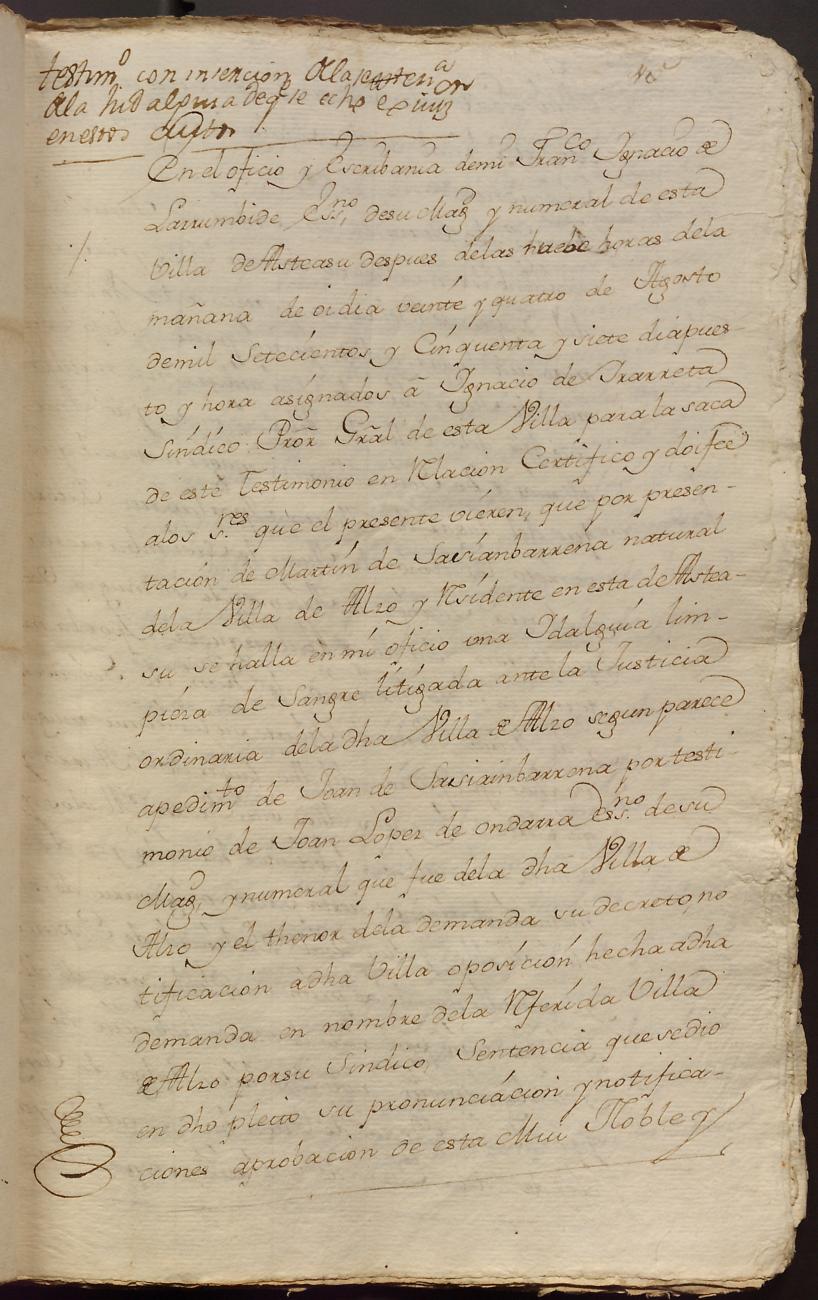 testim.º con insercion de la senten.ª
de la hidalguia
en estos autos
En el oficio y Escribania de mi Fran.co Ignacio de
Larrumbide, Ess.no de su Mag.d y numeral de esta
Villa de Asteasu despues de las nuebe horas de la
mañana de oi dia veinte y quatro de Agosto
de mil Setecientos y Cinquenta y siete dia pues-
to y hora asignados â Ignacio de Irarreta
Sindico Pror Gral de esta Villa para la saca
de este Testimonio en Relacion Certifico y doi fee
a los s.res que el presente vieren, que por presen-
tacion de Martin de Sasianbarrena natural
de la Villa de Alzo y Residente en esta de Astea-
su se halla en mi oficio una Idalguia lim-
pieza de Sangre litigada ante la Justicia
ordinaria de la dha Villa de Alzo segun parece
a pedim.to de Joan de Sasiainbarrena por testi-
monio de Joan Lopez de ondarra ess.no de su
Mag.d y numeral que fue de la dha Villa de
Alzo y el thenor de la demanda su decreto, no
tificacion a dha Villa oposicion hecha a dha
demanda en nombre de la Referida Villa
de Alzo por su Sindico, Sentencia que se dio
en dho pleito su pronunciacion y notifica-
ciones aprobacion de esta Mui Noble y